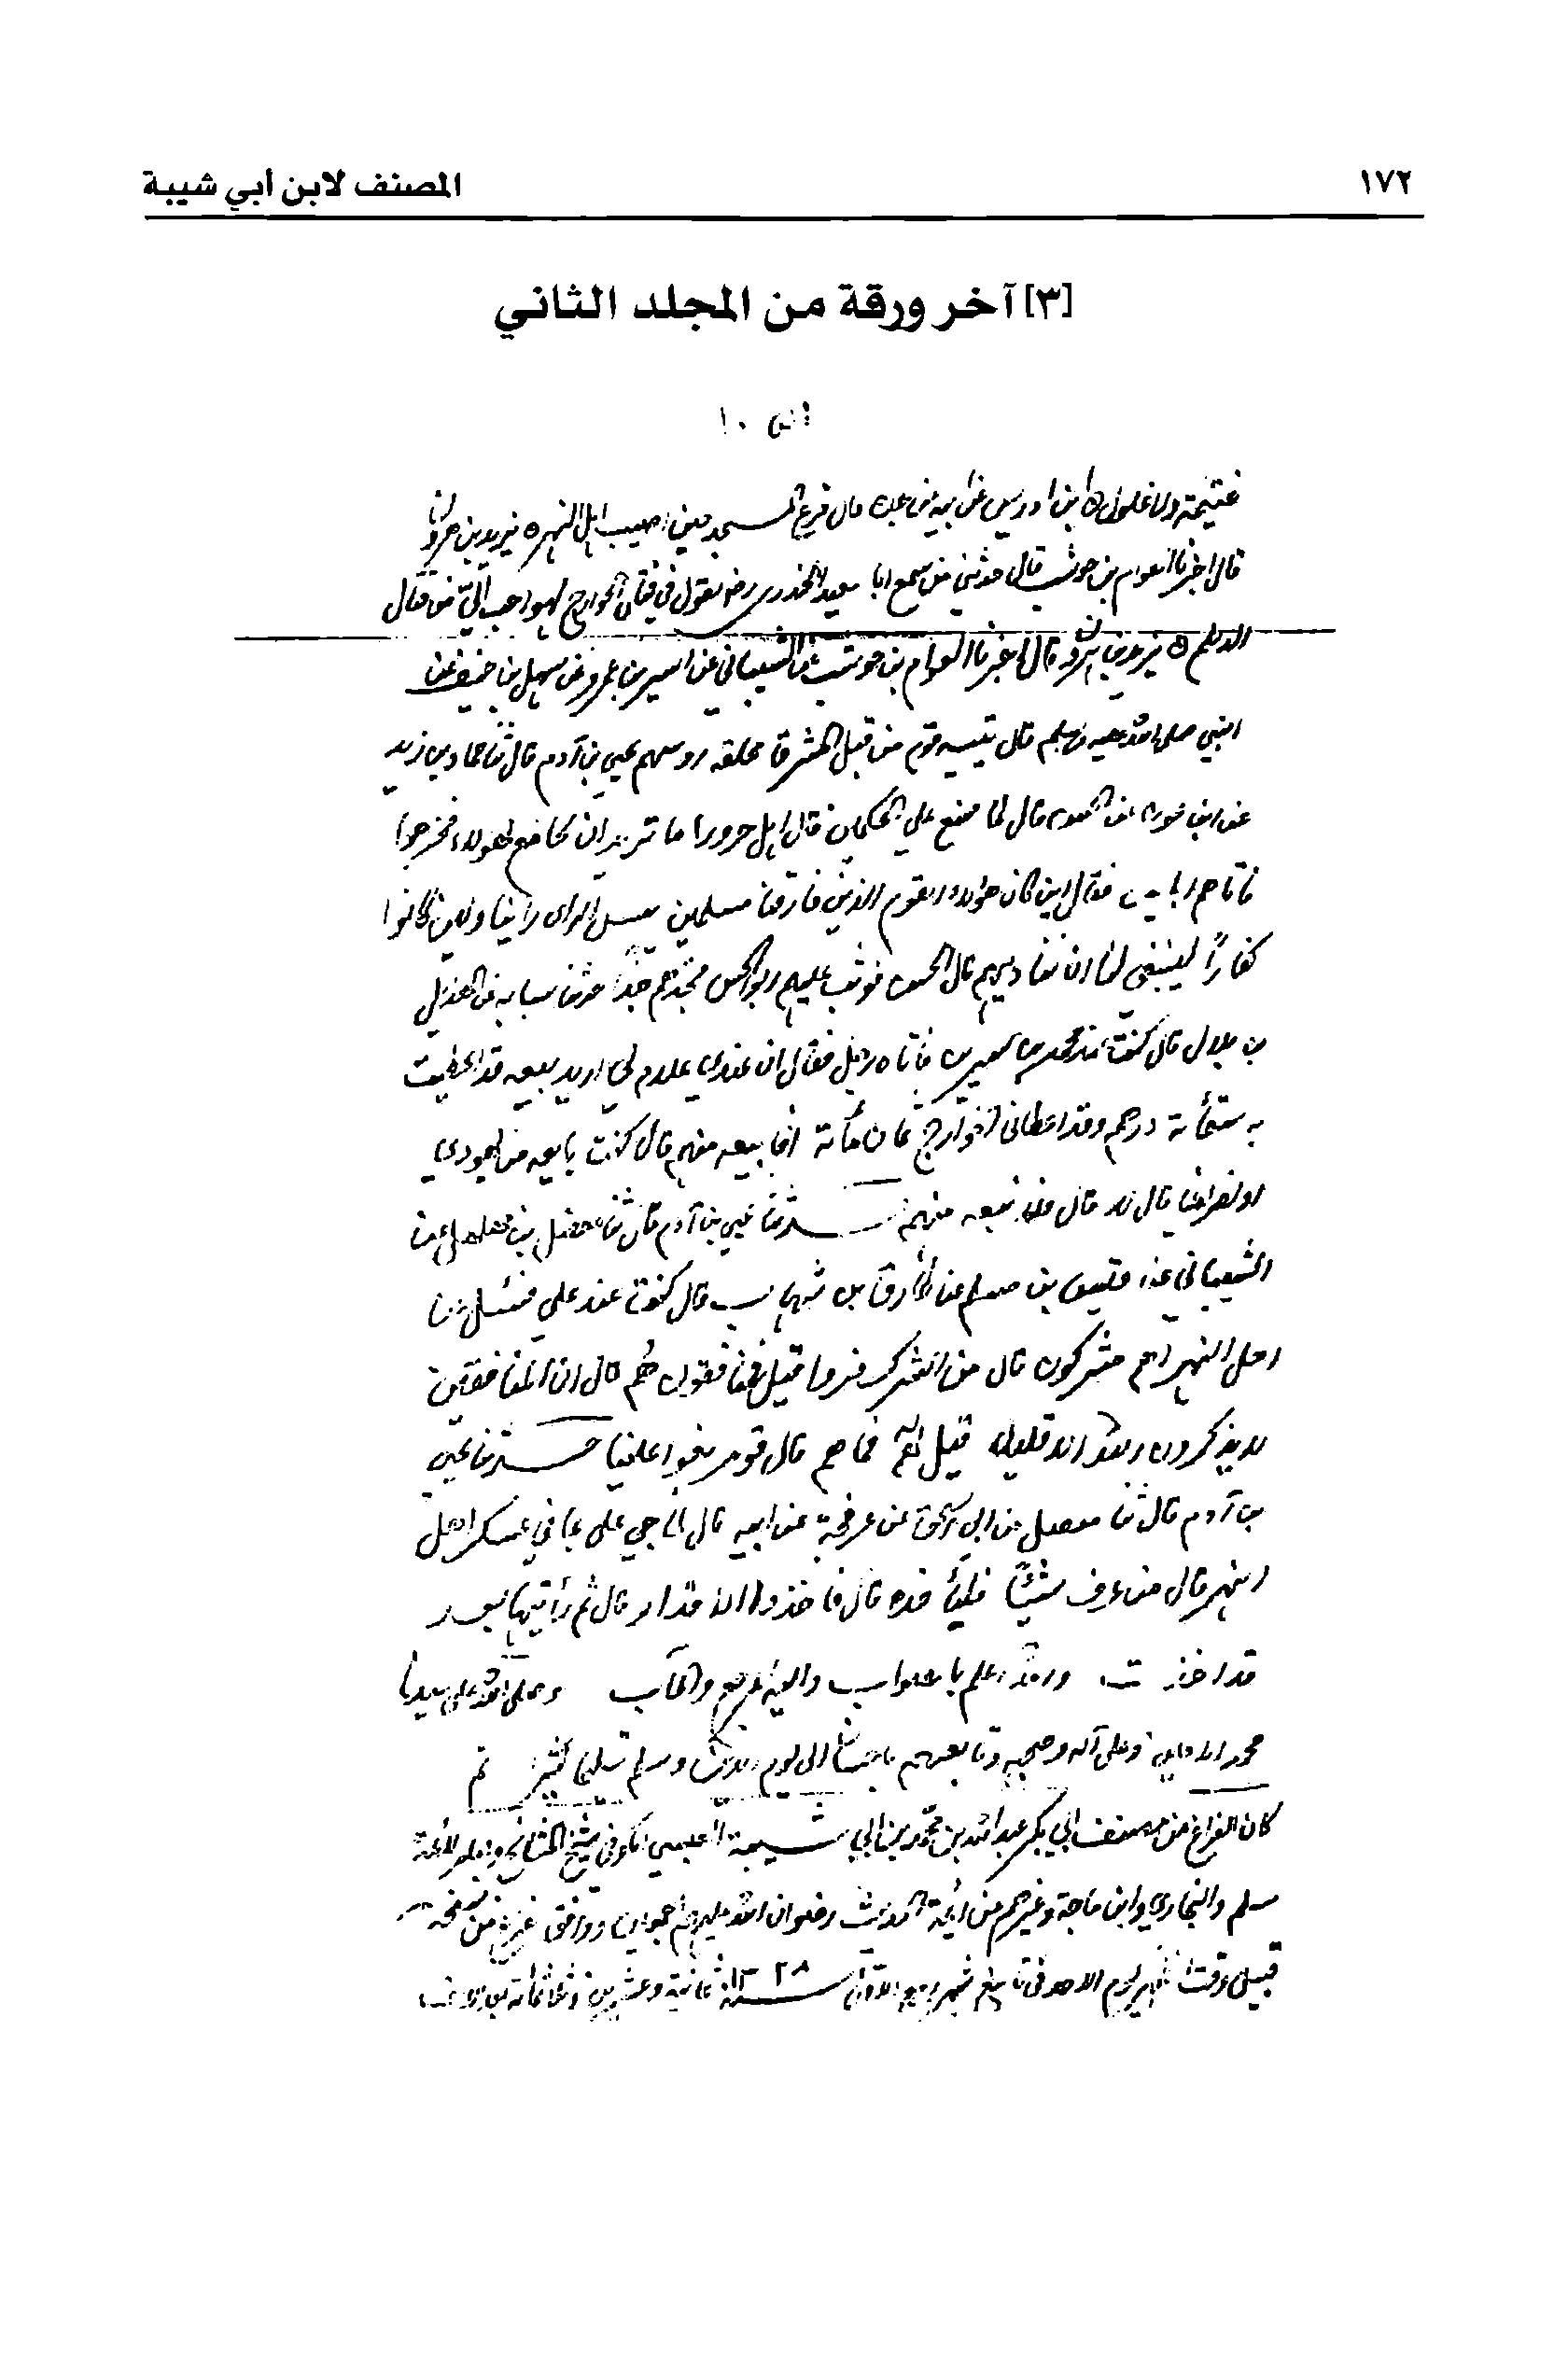 ١٧٢
المصنف لابن أبي شيبة
[٣] آخر ورقة من المجلد الثاني
غنيمة ولا غلول ابن ادريس عن ابيه عن جده قال فزع المسجد حين اصيب اهل النهر يزيد بن هرون
قال اخبرنا العوام بن حوشب قال حدثني من سمع ابا سعيد الخدري رضـ يقول في قتال الخوارج لهو احب اليّ من قتال
الديلم يزيد بن هرون قال اخبرنا العوام بن حوشب عن الشيباني عن اسير بن عمرو عن سهل بن حنيف عن
النبي صلى الله عليه وسلم قال يتيه قوم من قبل المشرق محلقة روسهم يحيى بن آدم قال ثنا حماد بن زيد
عن ابن عون عن الحسن قال لما صنع علي الحكمين قال اهل حرورا ما تريد ان تجامع لهولاء فخرجوا
فاتاهم ابليس فقال اين كان هولاء القوم الذين فارقنا مسلمين لبيس الراى راينا ولئن كانوا
كفاراً لينبغي لنا ان نناديهم قال الحسن فوثب عليهم ابو الحسن فجذهم جذا حدثنا شبابه عن الهذيل
بن بلال قال كنت عند محمد بن سيرين فاتاه رجل فقال ان عندي غلام لي اريد بيعه قد اعطيت
به ستمأية درهم وقد اعطاني الخوارج ثمان مأية افابيعه منهم قال كنت بايعه من يهودي
او نصراني قال لا قال فلا تبيعه منهم حدثنا يحيى بن آدم قال ثنا مفضل بن مهلهل عن
الشيباني عن قيس بن مسلم عن طارق بن شهاب قال كنت عند علي فسئل عن
اهل النهر اهم مشركون قال من الشرك فروا قيل فمنافقون هم قال ان المنافقين
لا يذكرون الله الا قليلا قيل لهم فما هم قال قوم بغوا علينا حدثنا يحيى
بن آدم قال ثنا مفضل عن ابي اسحق عن عرفجة عن ابيه قال لما جي علي بما في عسكر اهل
النهر قال من عرف شيئاً فليأخذه قال فاخذوا الا قدر قال ثم رأيتها بعد
قد اخذت والله اعلم بالصواب واليه المرجع والمآب وصلى الله على سيدنا
محمد وعلى آله وصحبه وتابعيهم باحسان الى يوم الدين وسلم تسليما كثيرا تم
كان الفراغ من مصنف ابي بكر عبد الله بن محمد بن ابي شيبة العبسي الكوفي شيخ المشايخ
مسلم والبخاري وابن ماجة وغيرهم من ائمة الحديث رضوان الله عليهم اجمعين ووافق
قبيل وقت يوم الاحد شهر ربيع سنة ١٣٢٨ ثمانية وعشرين وثلاثمائة